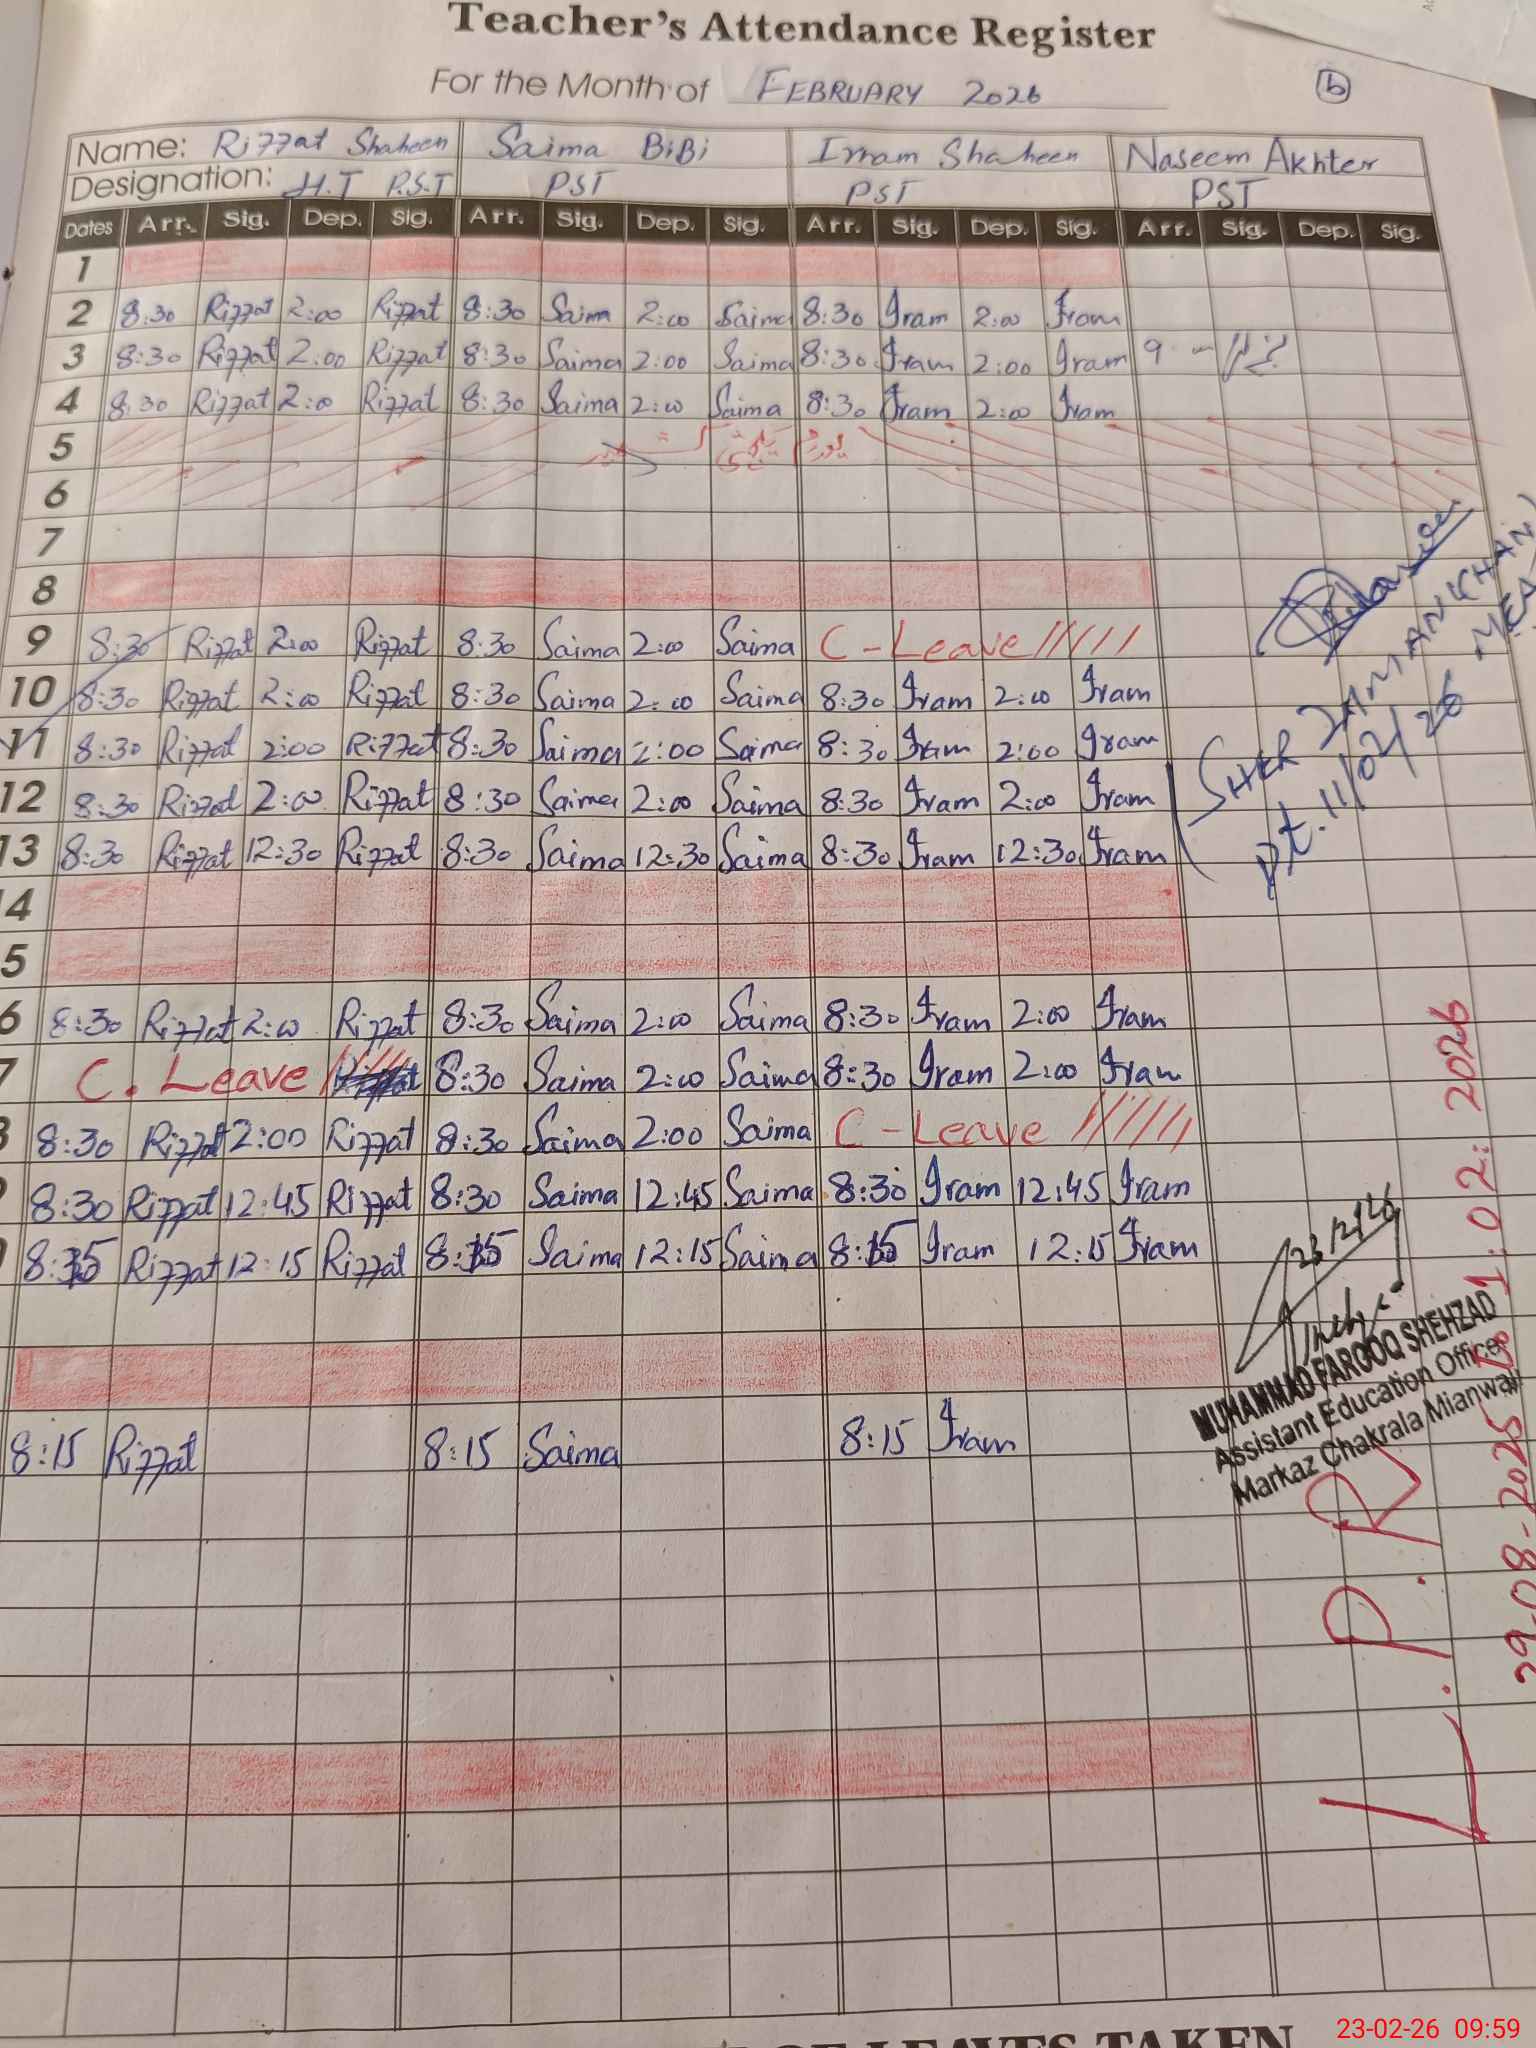 Teacher's Attendance Register
For the Month of FEBRUARY 2026
b
Name: Rizzat Shaheen Saima BiBi Irram Shaheen Naseem Akhter
Designation: H.T P.S.T PST PST PST
Dates Arr. Sig. Dep. Sig. Arr. Sig. Dep. Sig. Arr. Sig. Dep. Sig. Arr. Sig. Dep. Sig.
1
2 8:30 Rizzat 2:00 Rizzat 8:30 Saima 2:00 Saima 8:30 Iram 2:00 Iram
3 8:30 Rizzat 2:00 Rizzat 8:30 Saima 2:00 Saima 8:30 Iram 2:00 Iram
4 8:30 Rizzat 2:00 Rizzat 8:30 Saima 2:00 Saima 8:30 Iram 2:00 Iram
5
6
7
8
9 8:30 Rizzat 2:00 Rizzat 8:30 Saima 2:00 Saima C-Leave
10 8:30 Rizzat 2:00 Rizzat 8:30 Saima 2:00 Saima 8:30 Iram 2:00 Iram
11 8:30 Rizzat 2:00 Rizzat 8:30 Saima 2:00 Saima 8:30 Iram 2:00 Iram
12 8:30 Rizzat 2:00 Rizzat 8:30 Saima 2:00 Saima 8:30 Iram 2:00 Iram
13 8:30 Rizzat 12:30 Rizzat 8:30 Saima 12:30 Saima 8:30 Iram 12:30 Iram
SHER ZAMAN KHAN
MEA
Dt. 11/02/26
14
5
6 8:30 Rizzat 2:00 Rizzat 8:30 Saima 2:00 Saima 8:30 Iram 2:00 Iram
7 C. Leave 8:30 Saima 2:00 Saima 8:30 Iram 2:00 Iram
8 8:30 Rizzat 2:00 Rizzat 8:30 Saima 2:00 Saima C-Leave
8:30 Rizzat 12:45 Rizzat 8:30 Saima 12:45 Saima 8:30 Iram 12:45 Iram
8:15 Rizzat 12:15 Rizzat 8:15 Saima 12:15 Saima 8:15 Iram 12:15 Iram
8:15 Rizzat 8:15 Saima 8:15 Iram
23/2/26
MUHAMMAD FAROOQ SHEHZAD
Assistant Education Officer
Markaz Chakrala Mianwali
L.P.R
29-08-2025 to 1.02.2026
OF LEAVES TAKEN
23-02-26 09:59